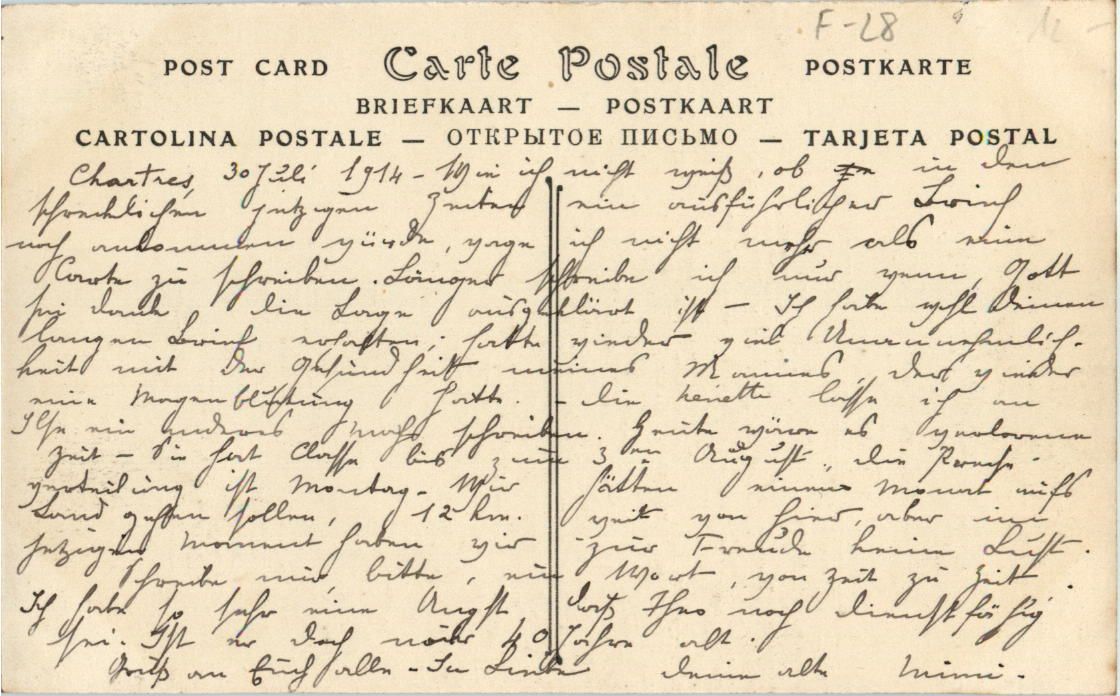 F-28
POST CARD Carte Postale POSTKARTE
BRIEFKAART — POSTKAART
CARTOLINA POSTALE — ОТКРЫТОЕ ПИСЬМО — TARJETA POSTAL
Chartres, 30 Juli 1914 - Wie ich nicht weiß, ob in den
schrecklichen jetzigen Zeiten ein ausführlicher Brief
noch ankommen würde, wage ich nicht mehr als eine
Carte zu schreiben. Länger schreibe ich nur wenn, Gott
sei dank die Lage ausgeklärt ist — Ich habe wohl Deinen
langen Brief erhalten; hatte wieder viel Unannehmlich-
keit mit der Gesundheit meines Mannes, der wieder
eine Magenblutung hatte. - die lasse ich an
Ilse ein anderes mahl schreiben. Heute wäre es verlorene
Zeit - Sie hat Classe bis zum 3en August, die Preise-
verteilung ist Montag. Wir hätten einen Monat aufs
Land gehen sollen, 12 km. weit von hier, aber im
jetzigen Moment haben wir zur Freude keine Lust.
Schreibe mir, bitte, ein Wort, von Zeit zu Zeit.
Ich habe so sehr eine Angst daß Theo noch dienstfähig
sei. Ist er doch 40 Jahre alt.
Gruß an Euch alle - In Liebe deine alte Mimi.